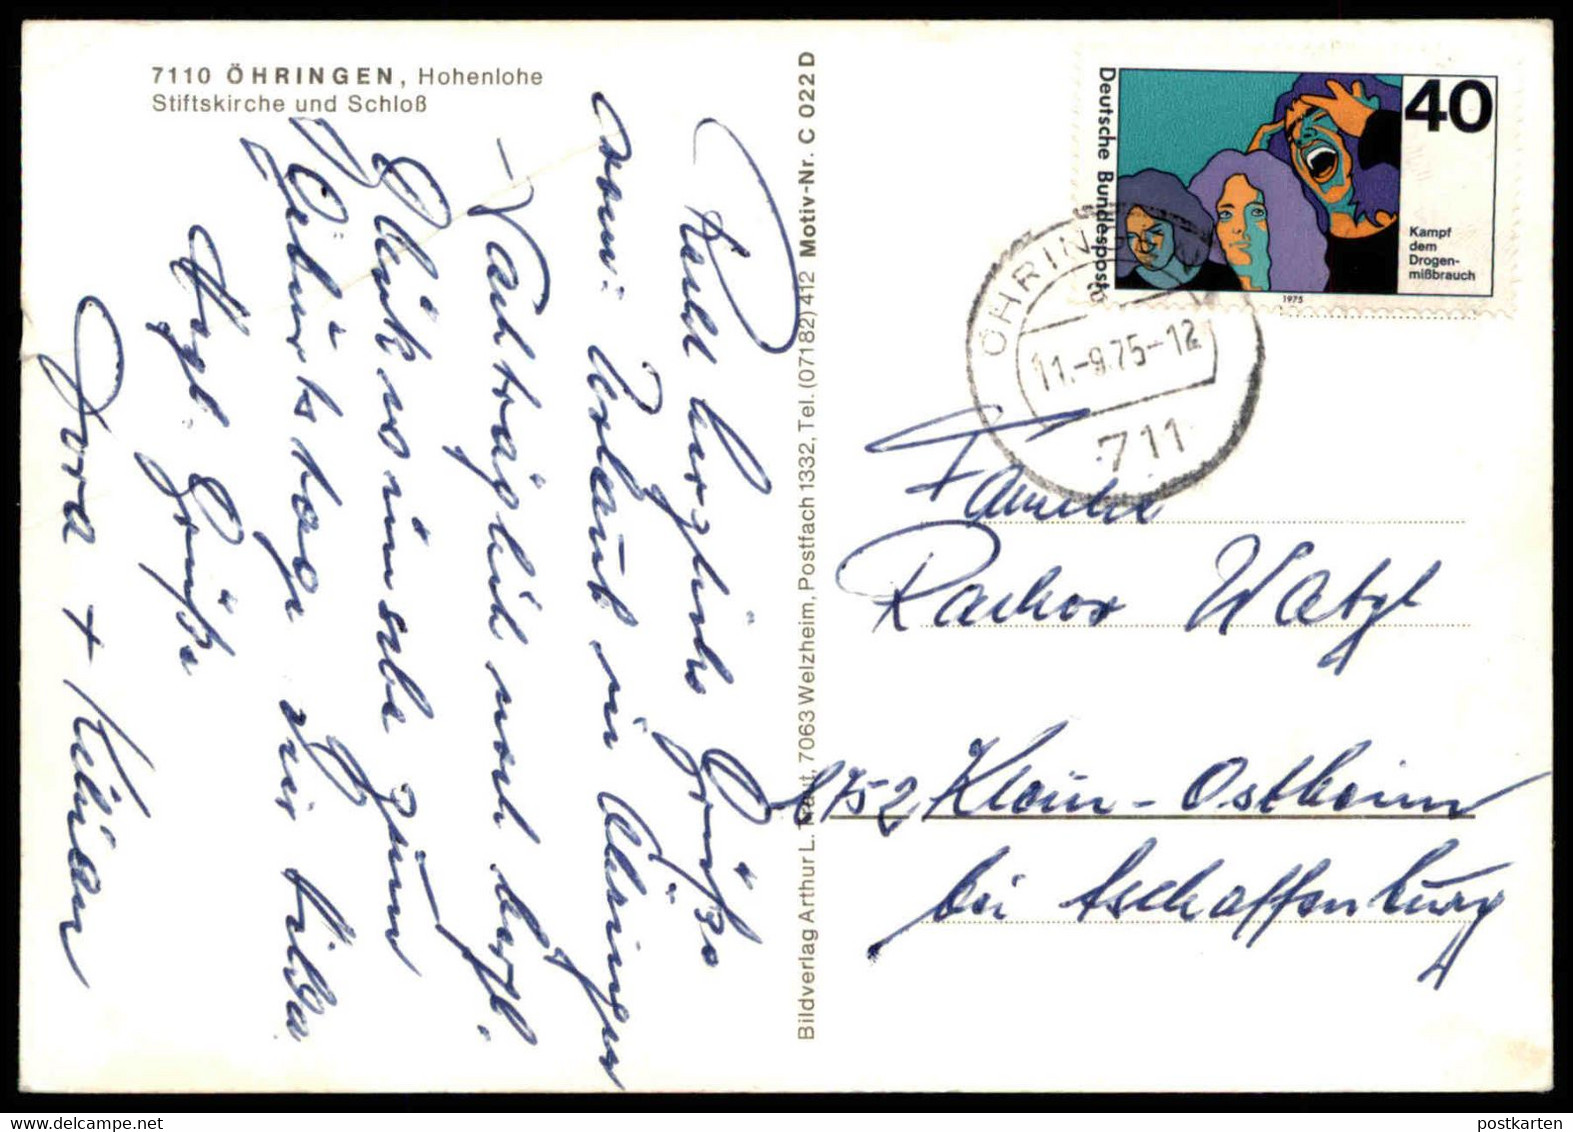 7110 ÖHRINGEN, Hohenlohe
Stiftskirche und Schloß
Recht herzliche Grüße
vom Urlaub in Öhringen
- Nachträglich noch herzl.
Glückwünsche zum
Geburtstage
Herzl. Grüße
Dora + Kilian
Bildverlag Arthur L. Traut, 7063 Welzheim, Postfach 1332, Tel. (07182) 412 Motiv-Nr. C 022 D
Deutsche Bundespost
40
Kampf
dem
Drogen-
mißbrauch
1975
ÖHRINGEN
11.-9.75-12
711
Familie
Watzl
8752 Klein-Ostheim
bei Aschaffenburg
postkarten